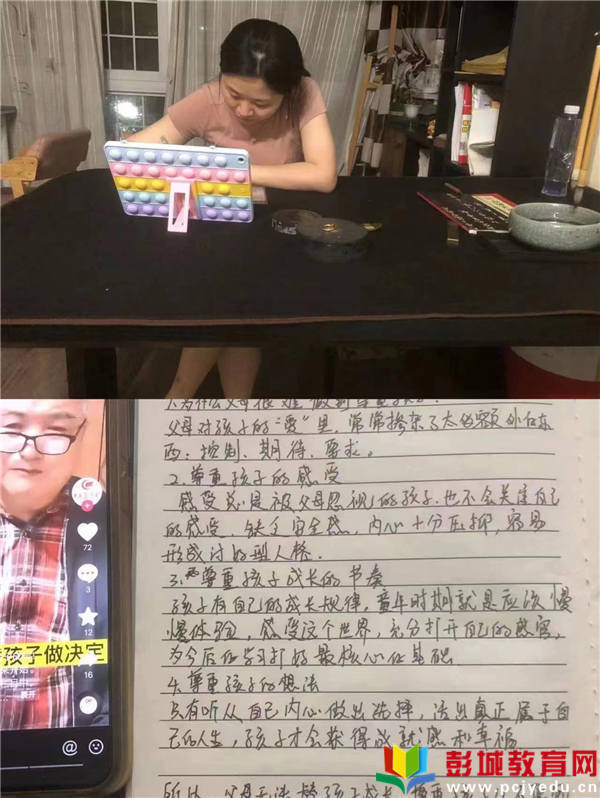 1.为什么父母很难做到尊重孩子?
父母对孩子的"爱"里,常常掺杂了太多额外的东
西:控制、期待、要求。
2.尊重孩子的感受
感受总是被父母忽视的孩子,也不会关注自己
的感受,缺乏安全感,内心十分压抑,容易
形成讨好型人格.
3.尊重孩子成长的节奏
孩子有自己的成长规律,童年时期就是应该慢
慢体验,感受这个世界,充分打开自己的感官,
为今后的学习打好最核心的基础
4.尊重孩子的想法
只有听从自己内心做出选择,活出真正属于自
己的人生,孩子才会获得成就感和幸福
所以,父母无法替孩子成长,尊重
72
3
12
16
孩子做决定
展开
@
彭城教育网
www.pcjyedu.cn